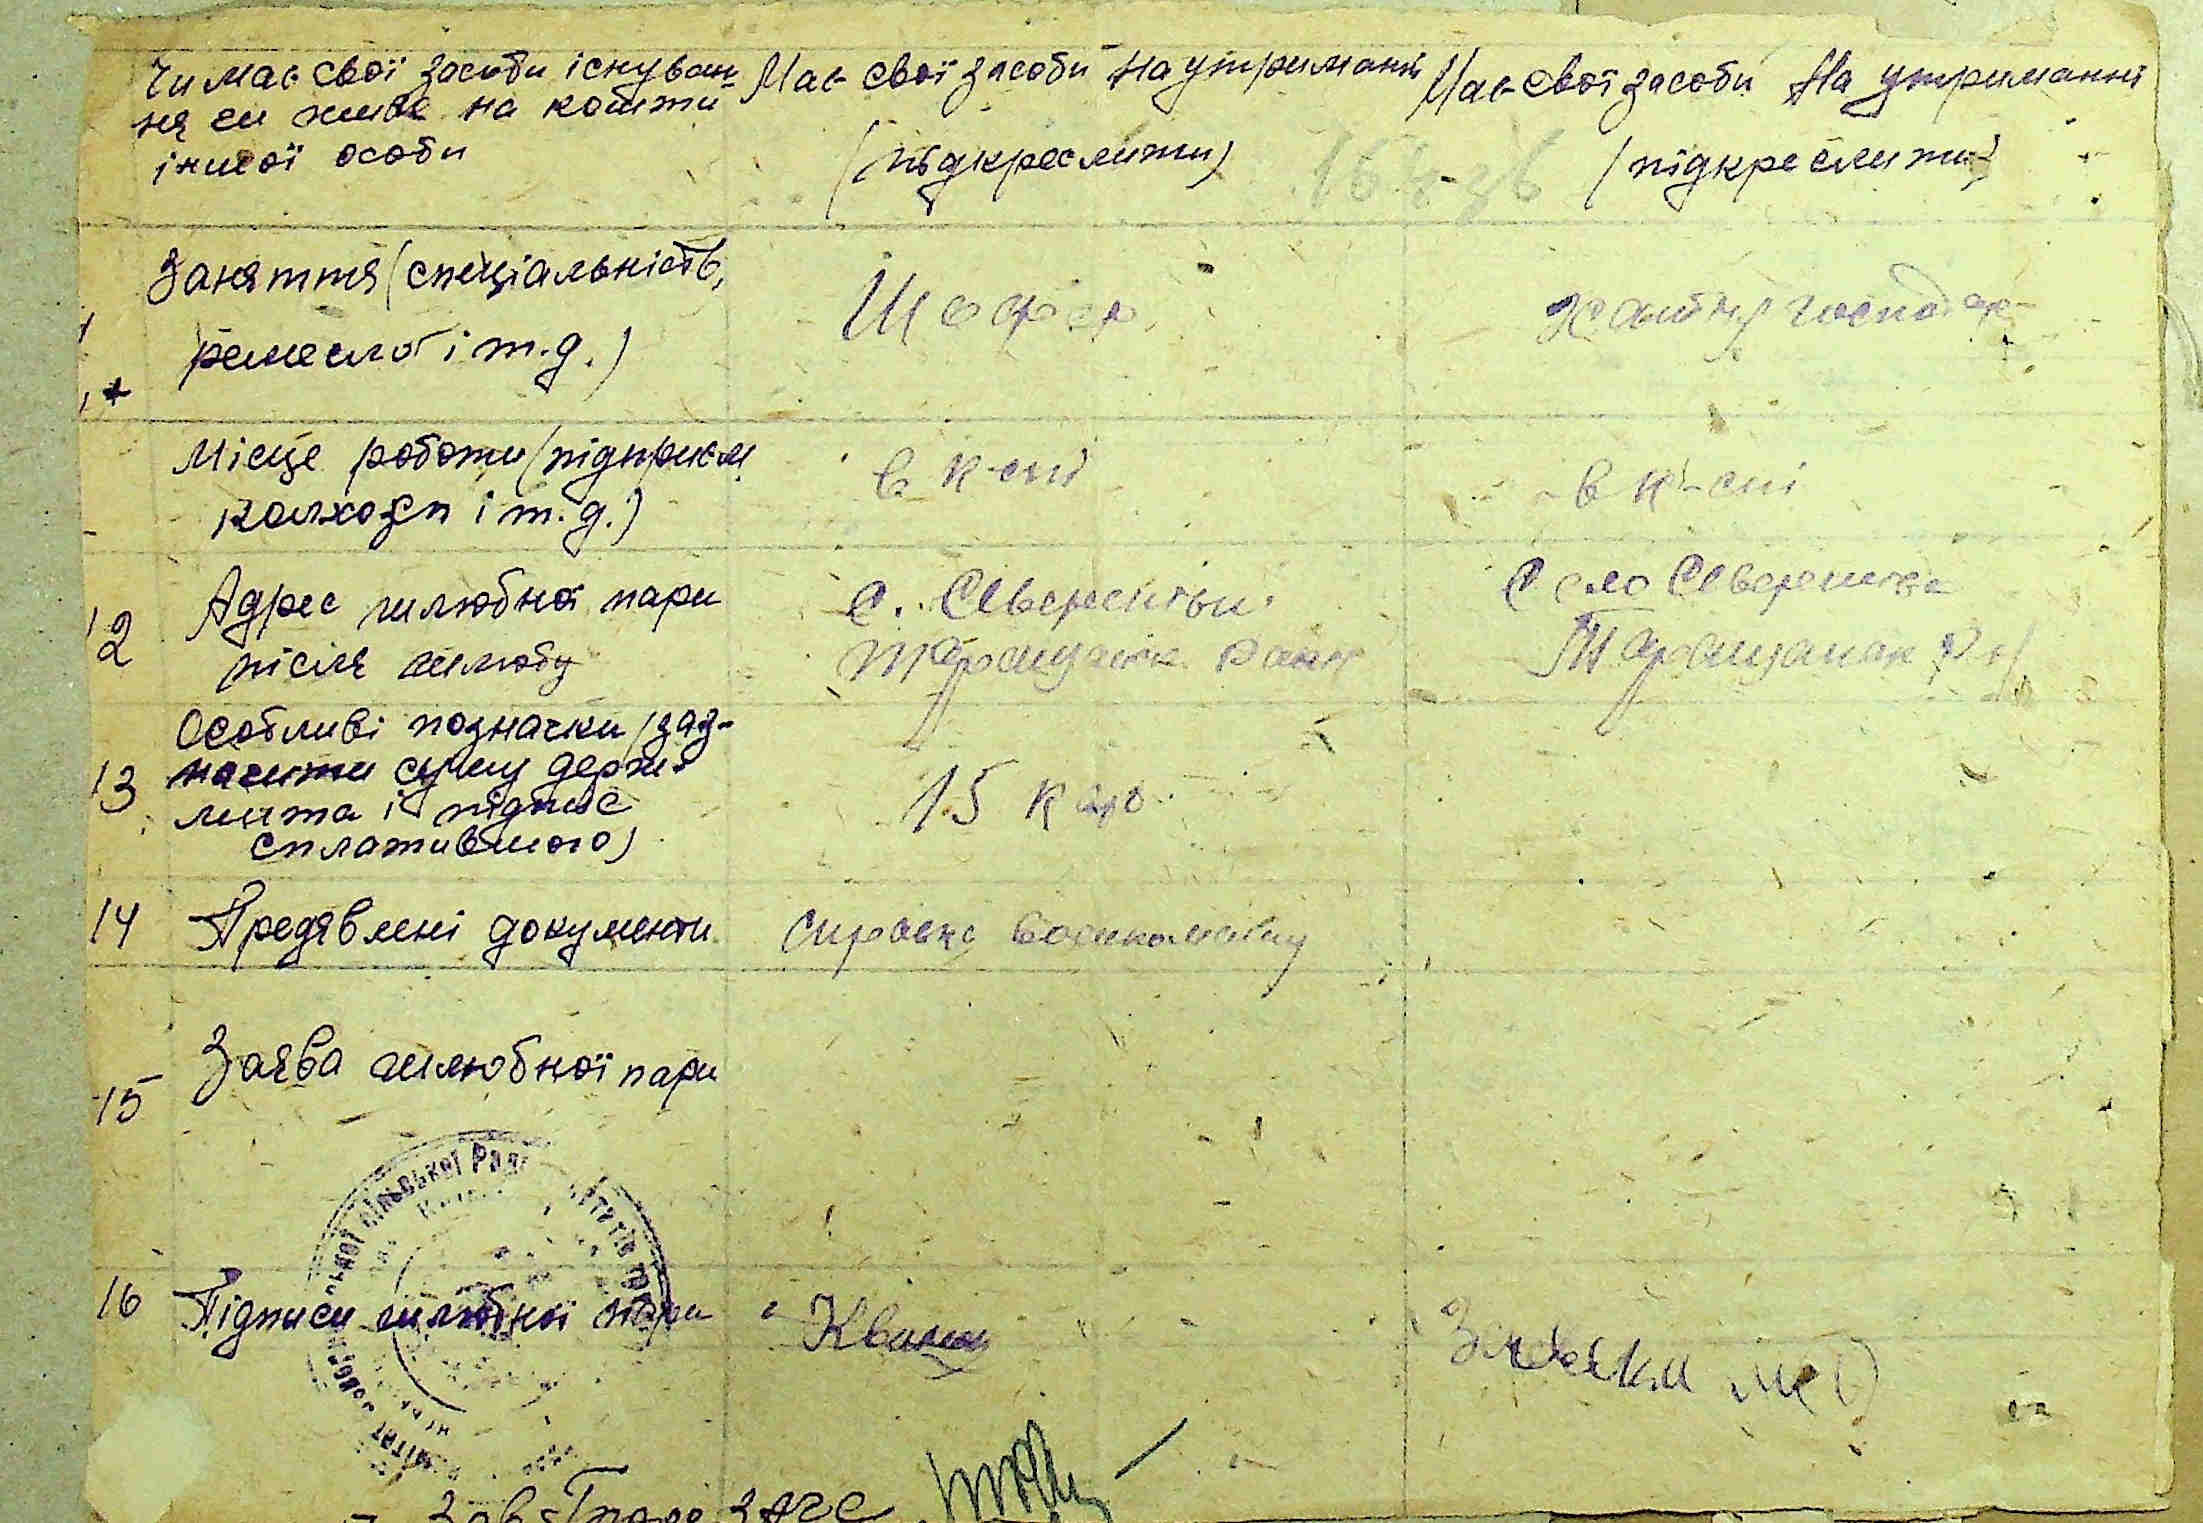 Чи має свої засоби існуван-
ня чи живе на кошти
іншої особи
Має свої засоби На утриманні
(підкреслити)
Має свої засоби На утриманні
(підкреслити)
Заняття (спеціальність,
ремесло і т.д.)
Шофер
хатня господар
Місце роботи (підприєм
колхозп і т.д.)
в к-спі
в к-спі
12 Адрес шлюбної пари
після шлюбу
с. Северенівки
Таращанск. район
Село Северинівка
Таращанск р-н
13 Особливі позначки (заз-
начити суму держ.
мита і підпис
сплатившого)
15 кар
14 Предявлені документи
справка военкомату
15 Заява шлюбної пари
16 Підписи шлюбної пари
Кваша
сільської Ради